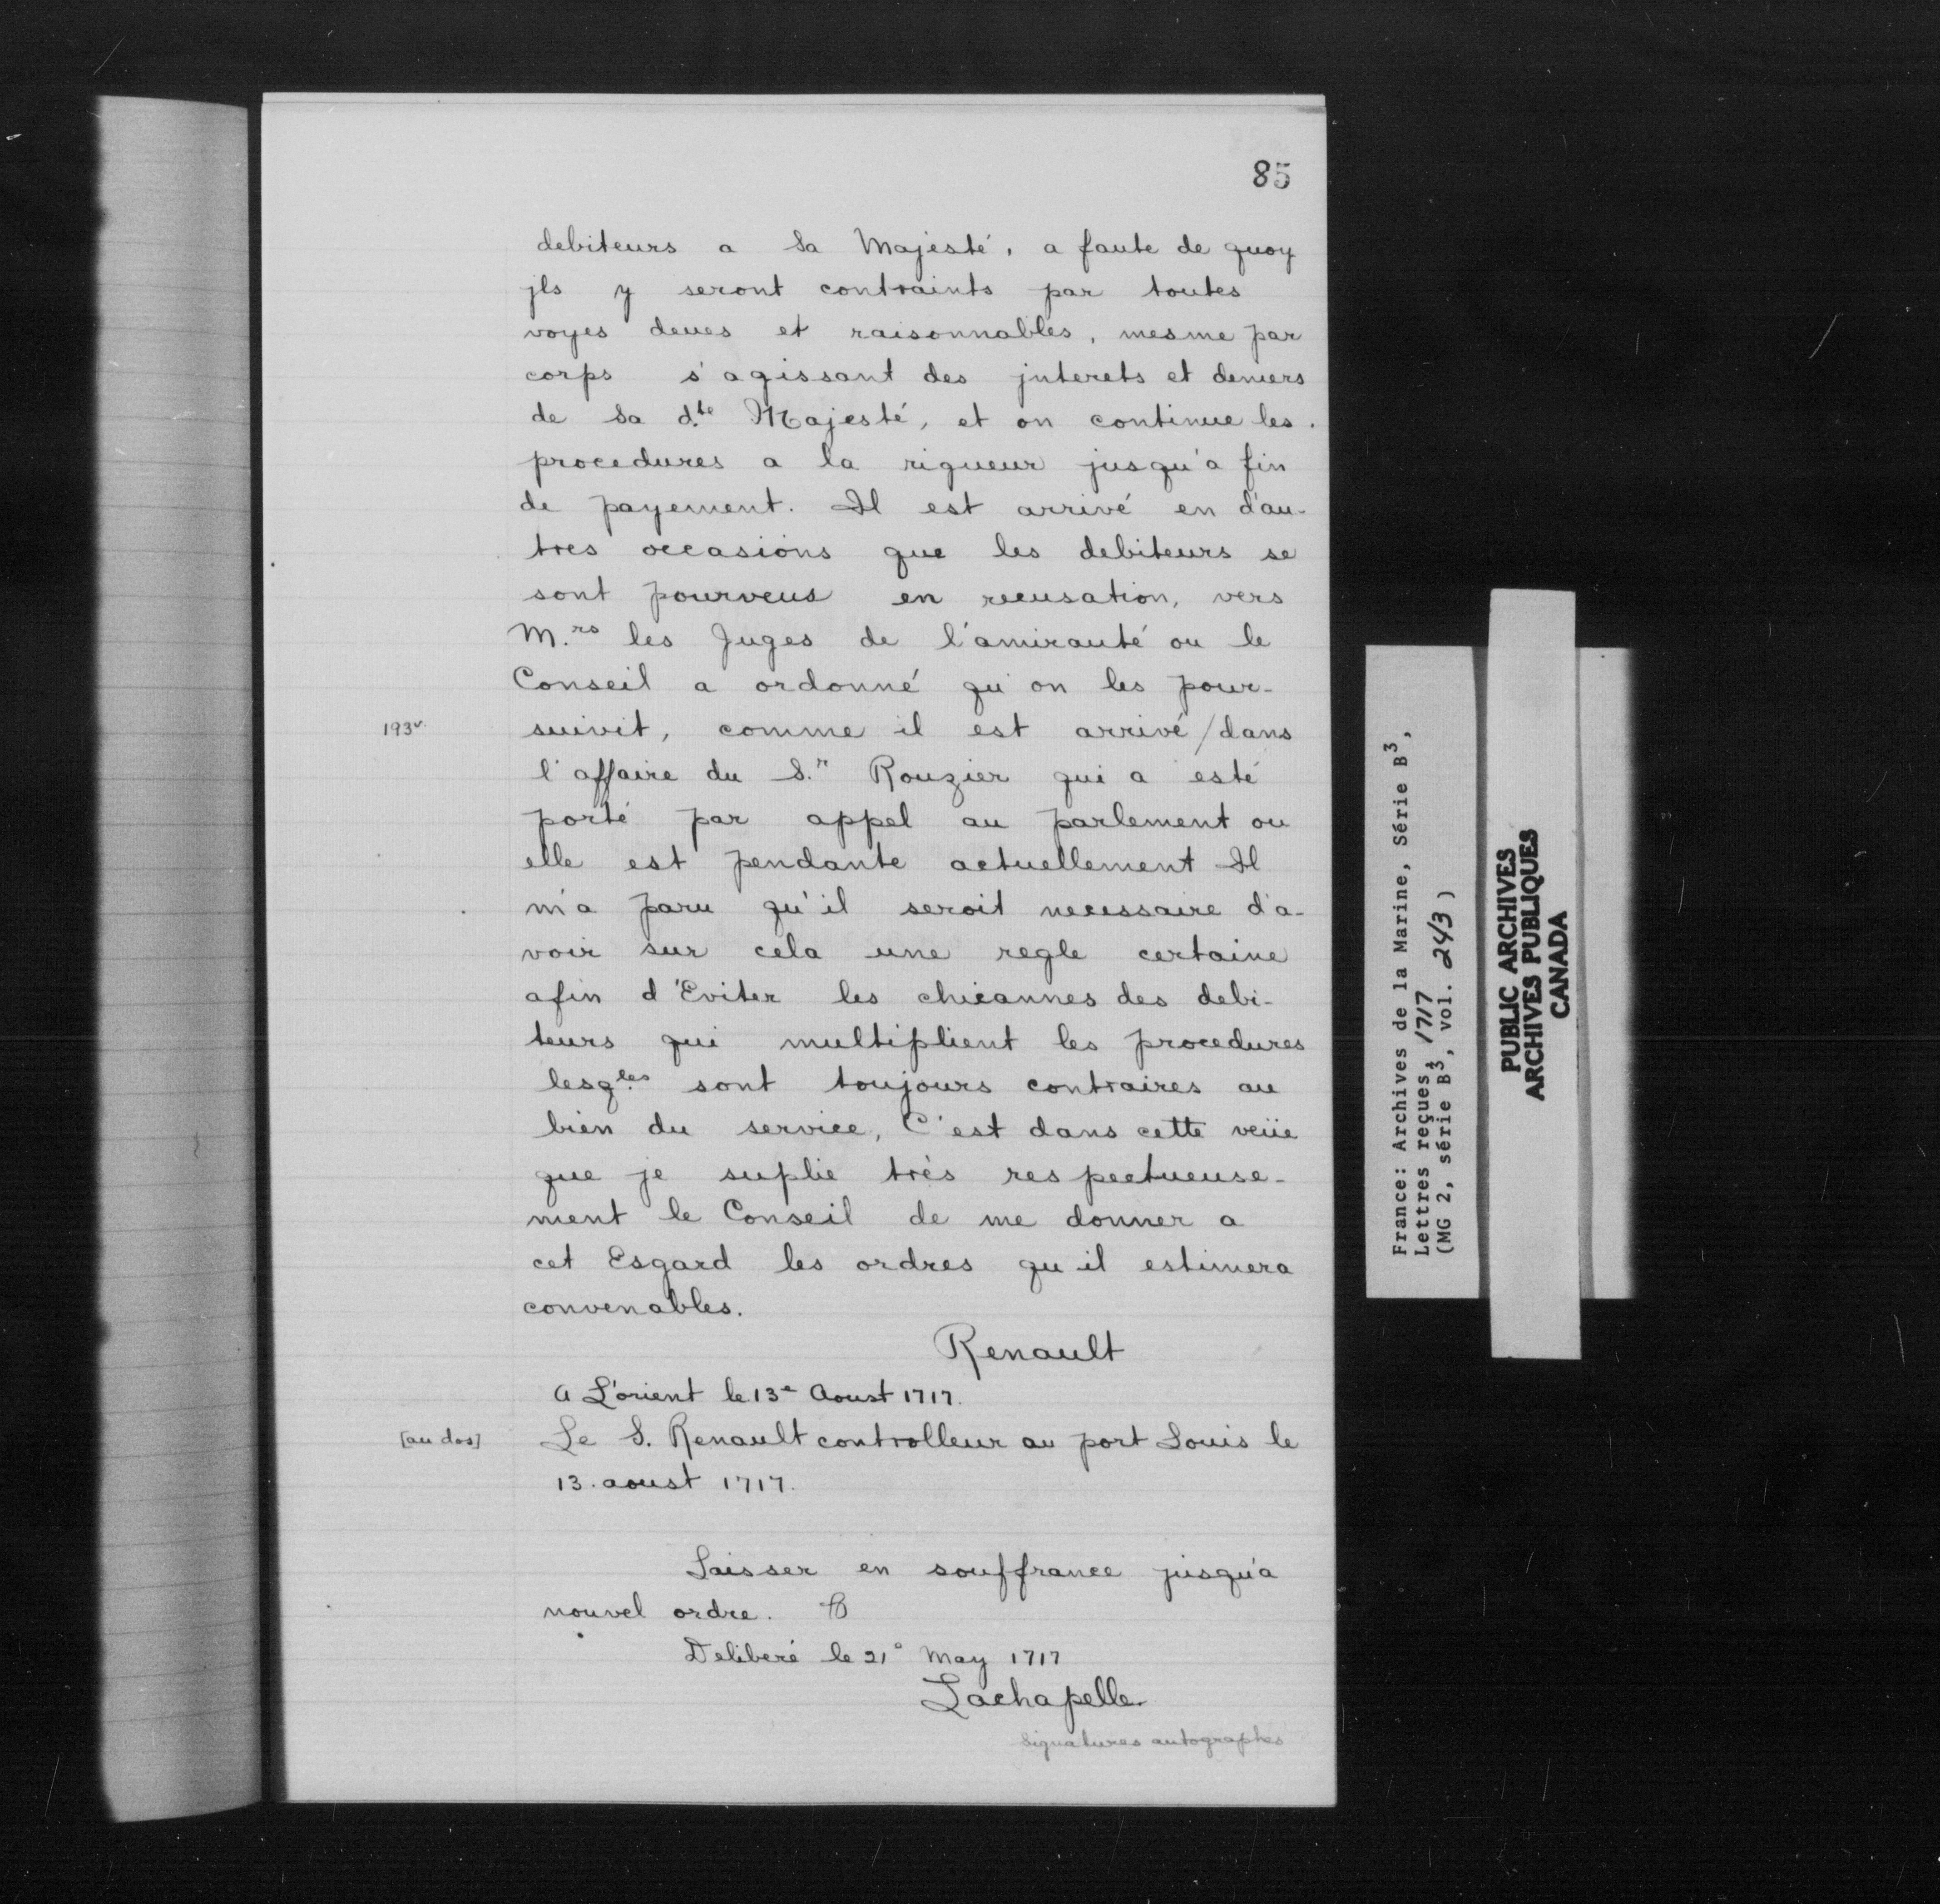 85
debiteurs a Sa Majesté, a faute de quoy
jls y seront contraints par toutes
voyes deues et raisonnables, mesme par
corps s'agissant des jnterets et deniers
de Sa d.te Majesté, et on continue les
procedures a la rigueur jusqu'a fin
de payement. Il est arrivé en d'au-
tres occasions que les debiteurs se
sont pourveus en recusation, vers
M.rs les Juges de l'amirauté ou le
Conseil a ordonné qu'on les pour-
193v. suivit, comme il est arrivé/dans
l'affaire du S.r Rouzier qui a esté
porté par appel au parlement ou
elle est pendante actuellement Il
m'a paru qu'il seroit necessaire d'a-
voir sur cela une regle certaine
afin d'Eviter les chicannes des debi-
teurs qui multiplient les procedures
lesq.les sont toujours contraires au
bien du service, C'est dans cette veüe
que je suplie très respectueuse-
ment le Conseil de me donner a
cet Esgard les ordres qu'il estimera
convenables.
Renault
A L'orient le 13e Aoust 1717.
[au dos] Le S. Renault controlleur au port Louis le
13. aoust 1717.
Laisser en souffrance jusqu'a
nouvel ordre. B
Deliberé le 21° May 1717
Lachapelle
signatures autographes
France: Archives de la Marine, Série B3,
Lettres reçues, 1717
(MG 2, série B3, vol. 243)
PUBLIC ARCHIVES
ARCHIVES PUBLIQUES
CANADA